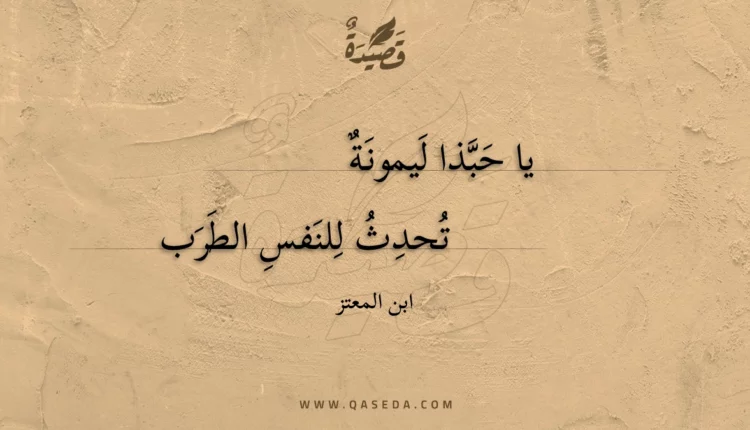 قَصِيدَةٌ
يا حَبَّذا لَيمونَةٌ
تُحدِثُ لِلنَفسِ الطَرَب
ابن المعتز
WWW.QASEDA.COM